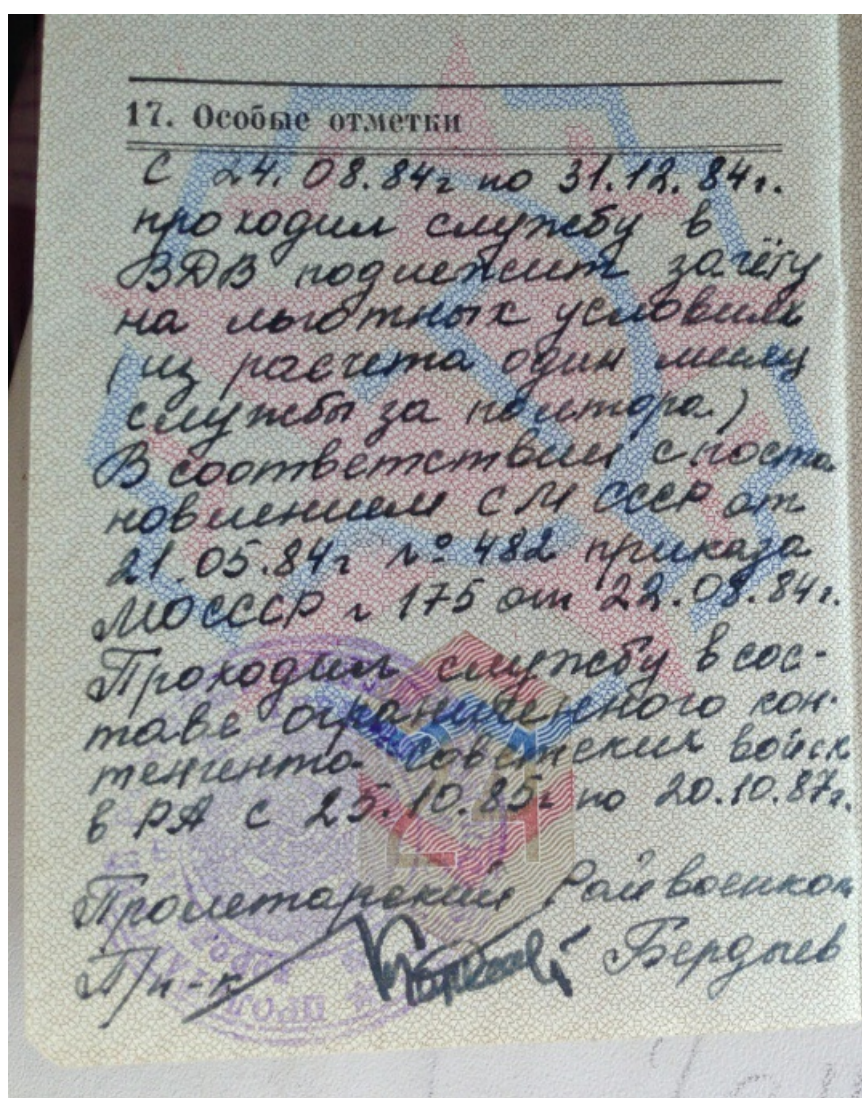 17. Особые отметки
С 24.08.84г по 31.12.84г.
проходил службу в
ВДВ подлежит зачёту
на льготных условиях
(из расчета один месяц
службы за полтора.)
В соответствии с поста
новлением СМ СССР от
21.05.84г № 482 приказа
МОСССР г 175 от 22.08.84г.
Проходил службу в сос-
таве ограниченного кон-
тенгента советских войск
в РА с 25.10.85г по 20.10.87г.
Пролетарский Райвоенком
П/п-к Бердыев